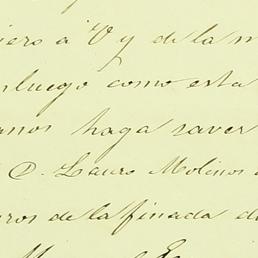 iero á V y de la m
nluego como esta
anos haga saver
D. Lauro Molinos
ros de la finada d